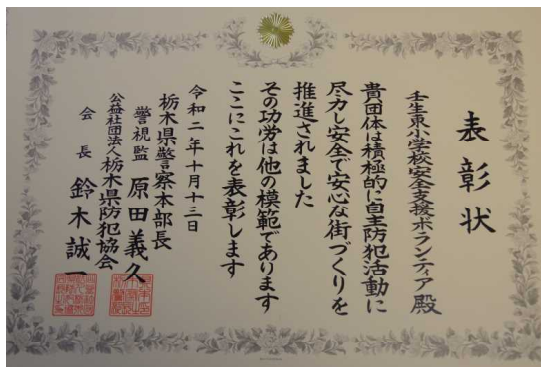 表彰状
壬生東小学校安全支援ボランティア殿
貴団体は積極的に自主防犯活動に
尽力し安全で安心な街づくりを
推進されました
その功労は他の模範であります
ここにこれを表彰します
令和二年十月十三日
栃木県警察本部長
警視監 原田義久
公益社団法人栃木県防犯協会
会長 鈴木誠一